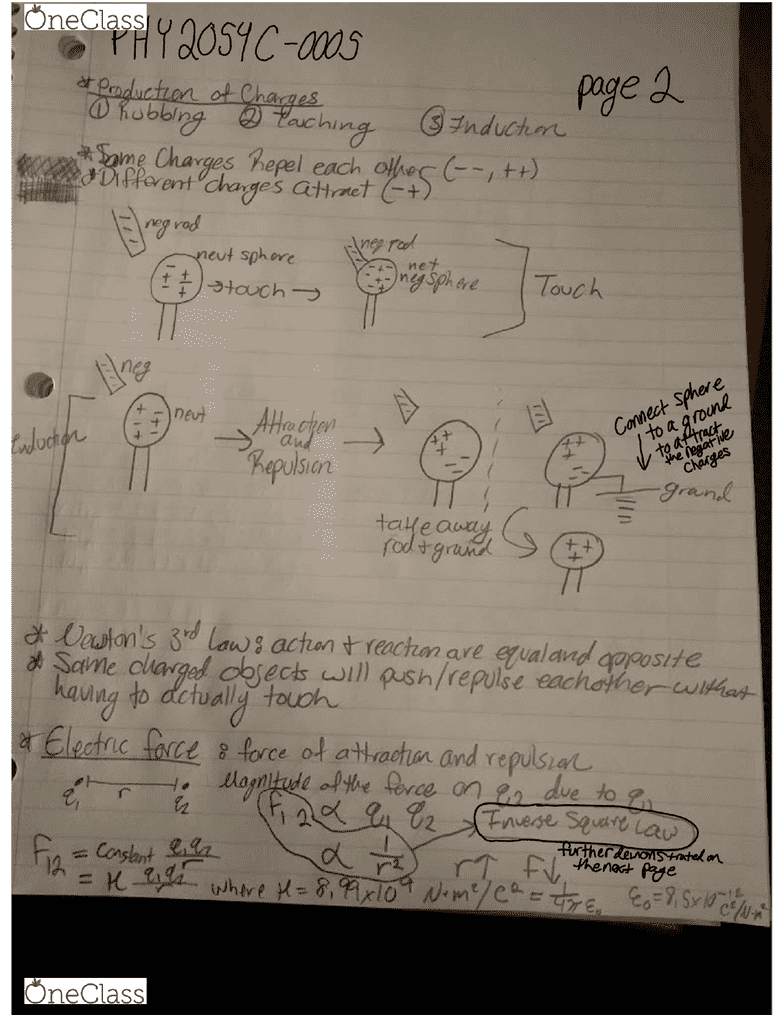 OneClass
PHY2054C-0005
page 2
* Production of Charges
① Rubbing ② touching ③ Induction
* Same Charges Repel each other (--, ++)
* Different charges attract (-+)
neg rod
neut sphere
→ touch →
neg rod
net
neg sphere
Touch
neg
neut
Induction
→ Attraction and Repulsion →
Connect sphere
to a ground
to attract
the negative
charges
ground
take away
rod + ground
* Newton's 3rd Law: action + reaction are equal and opposite
* Same charged objects will push/repulse eachother without
having to actually touch
* Electric force : force of attraction and repulsion
q₁ r q₂
Magnitude of the force on q₂ due to q₁
F₁₂ ∝ q₁ q₂
∝ 1/r²
Inverse Square Law
further demonstrated on
the next page
r↑ F↓
F₁₂ = constant q₁q₂/r
= K q₁q₂/r where K = 8,99x10⁹ N·m²/C² = 1/4πε₀ ε₀=8,5x10⁻¹² C²/N·m²
OneClass